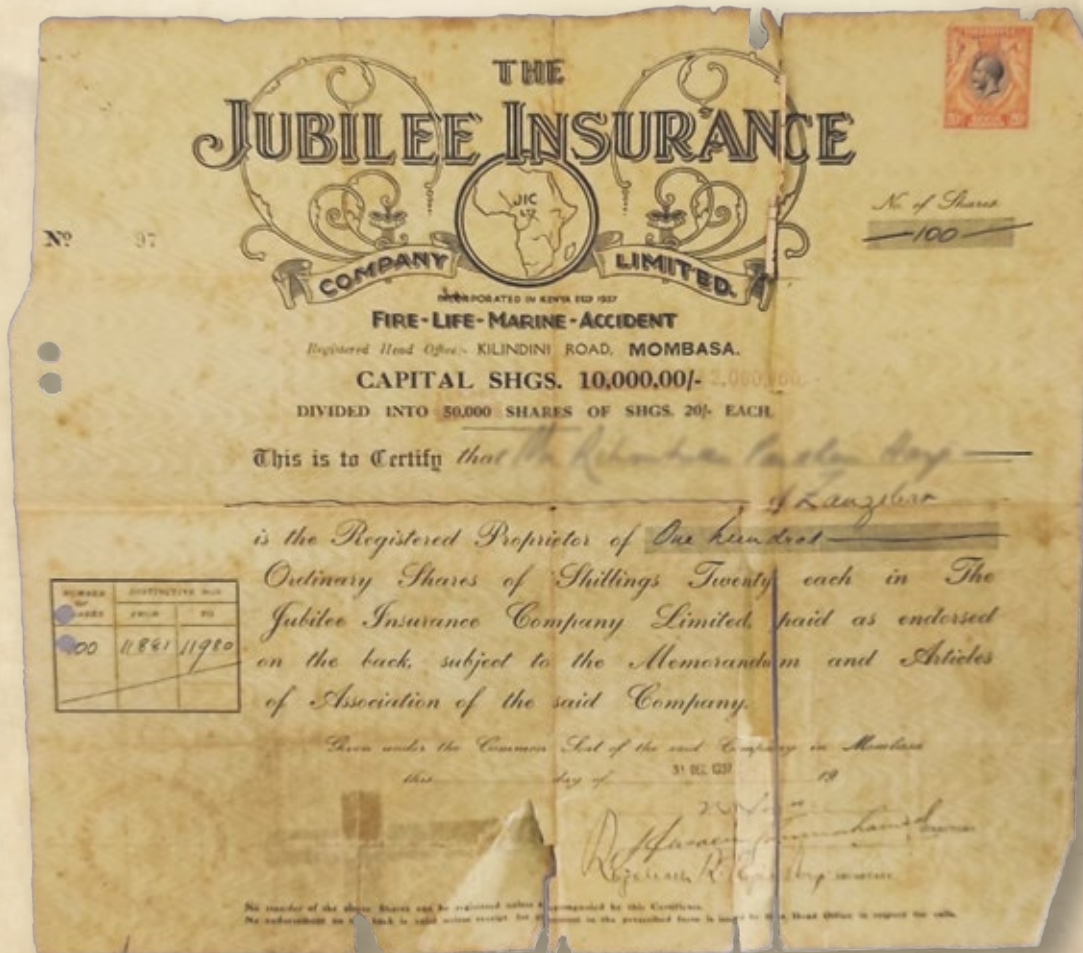 THE
JUBILEE INSURANCE
JIC
LTD
COMPANY LIMITED.
No. of Shares
100
Nº 97
INCORPORATED IN KENYA SEP 1937
FIRE-LIFE-MARINE-ACCIDENT
Registered Head Office:- KILINDINI ROAD, MOMBASA.
CAPITAL SHGS. 10,000,00/-
DIVIDED INTO 50,000 SHARES OF SHGS. 20/- EACH.
This is to Certify that
of Zanzibar
is the Registered Proprietor of One hundred
Ordinary Shares of Shillings Twenty each in The
Jubilee Insurance Company Limited, paid as endorsed
on the back, subject to the Memorandum and Articles
of Association of the said Company.
NUMBER OF SHARES DISTINCTIVE NOS
FROM TO
100 11881 11980
Given under the Common Seal of the said Company in Mombasa
this day of 31 DEC 1937 19
DIRECTORS
SECRETARY
No transfer of the above Shares can be registered unless accompanied by this Certificate.
No endorsement on the back is valid unless receipt for payment in the prescribed form is issued by Head Office in respect of calls.